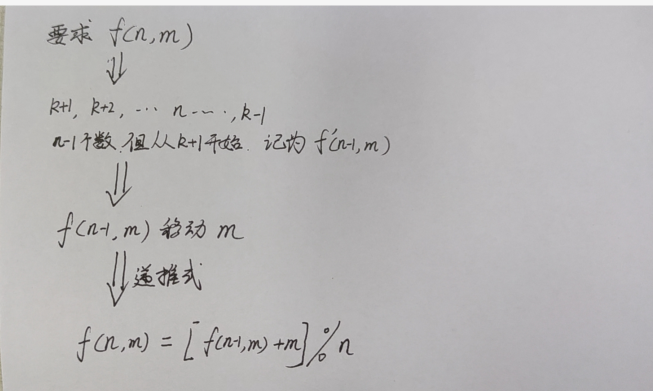 要求 f(n,m)
k+1, k+2, ... n ...., k-1
n-1个数,但从k+1开始. 记为 f'(n-1,m)
f(n-1,m) 移动 m
递推式
f(n,m) = [f(n-1,m)+m]%n